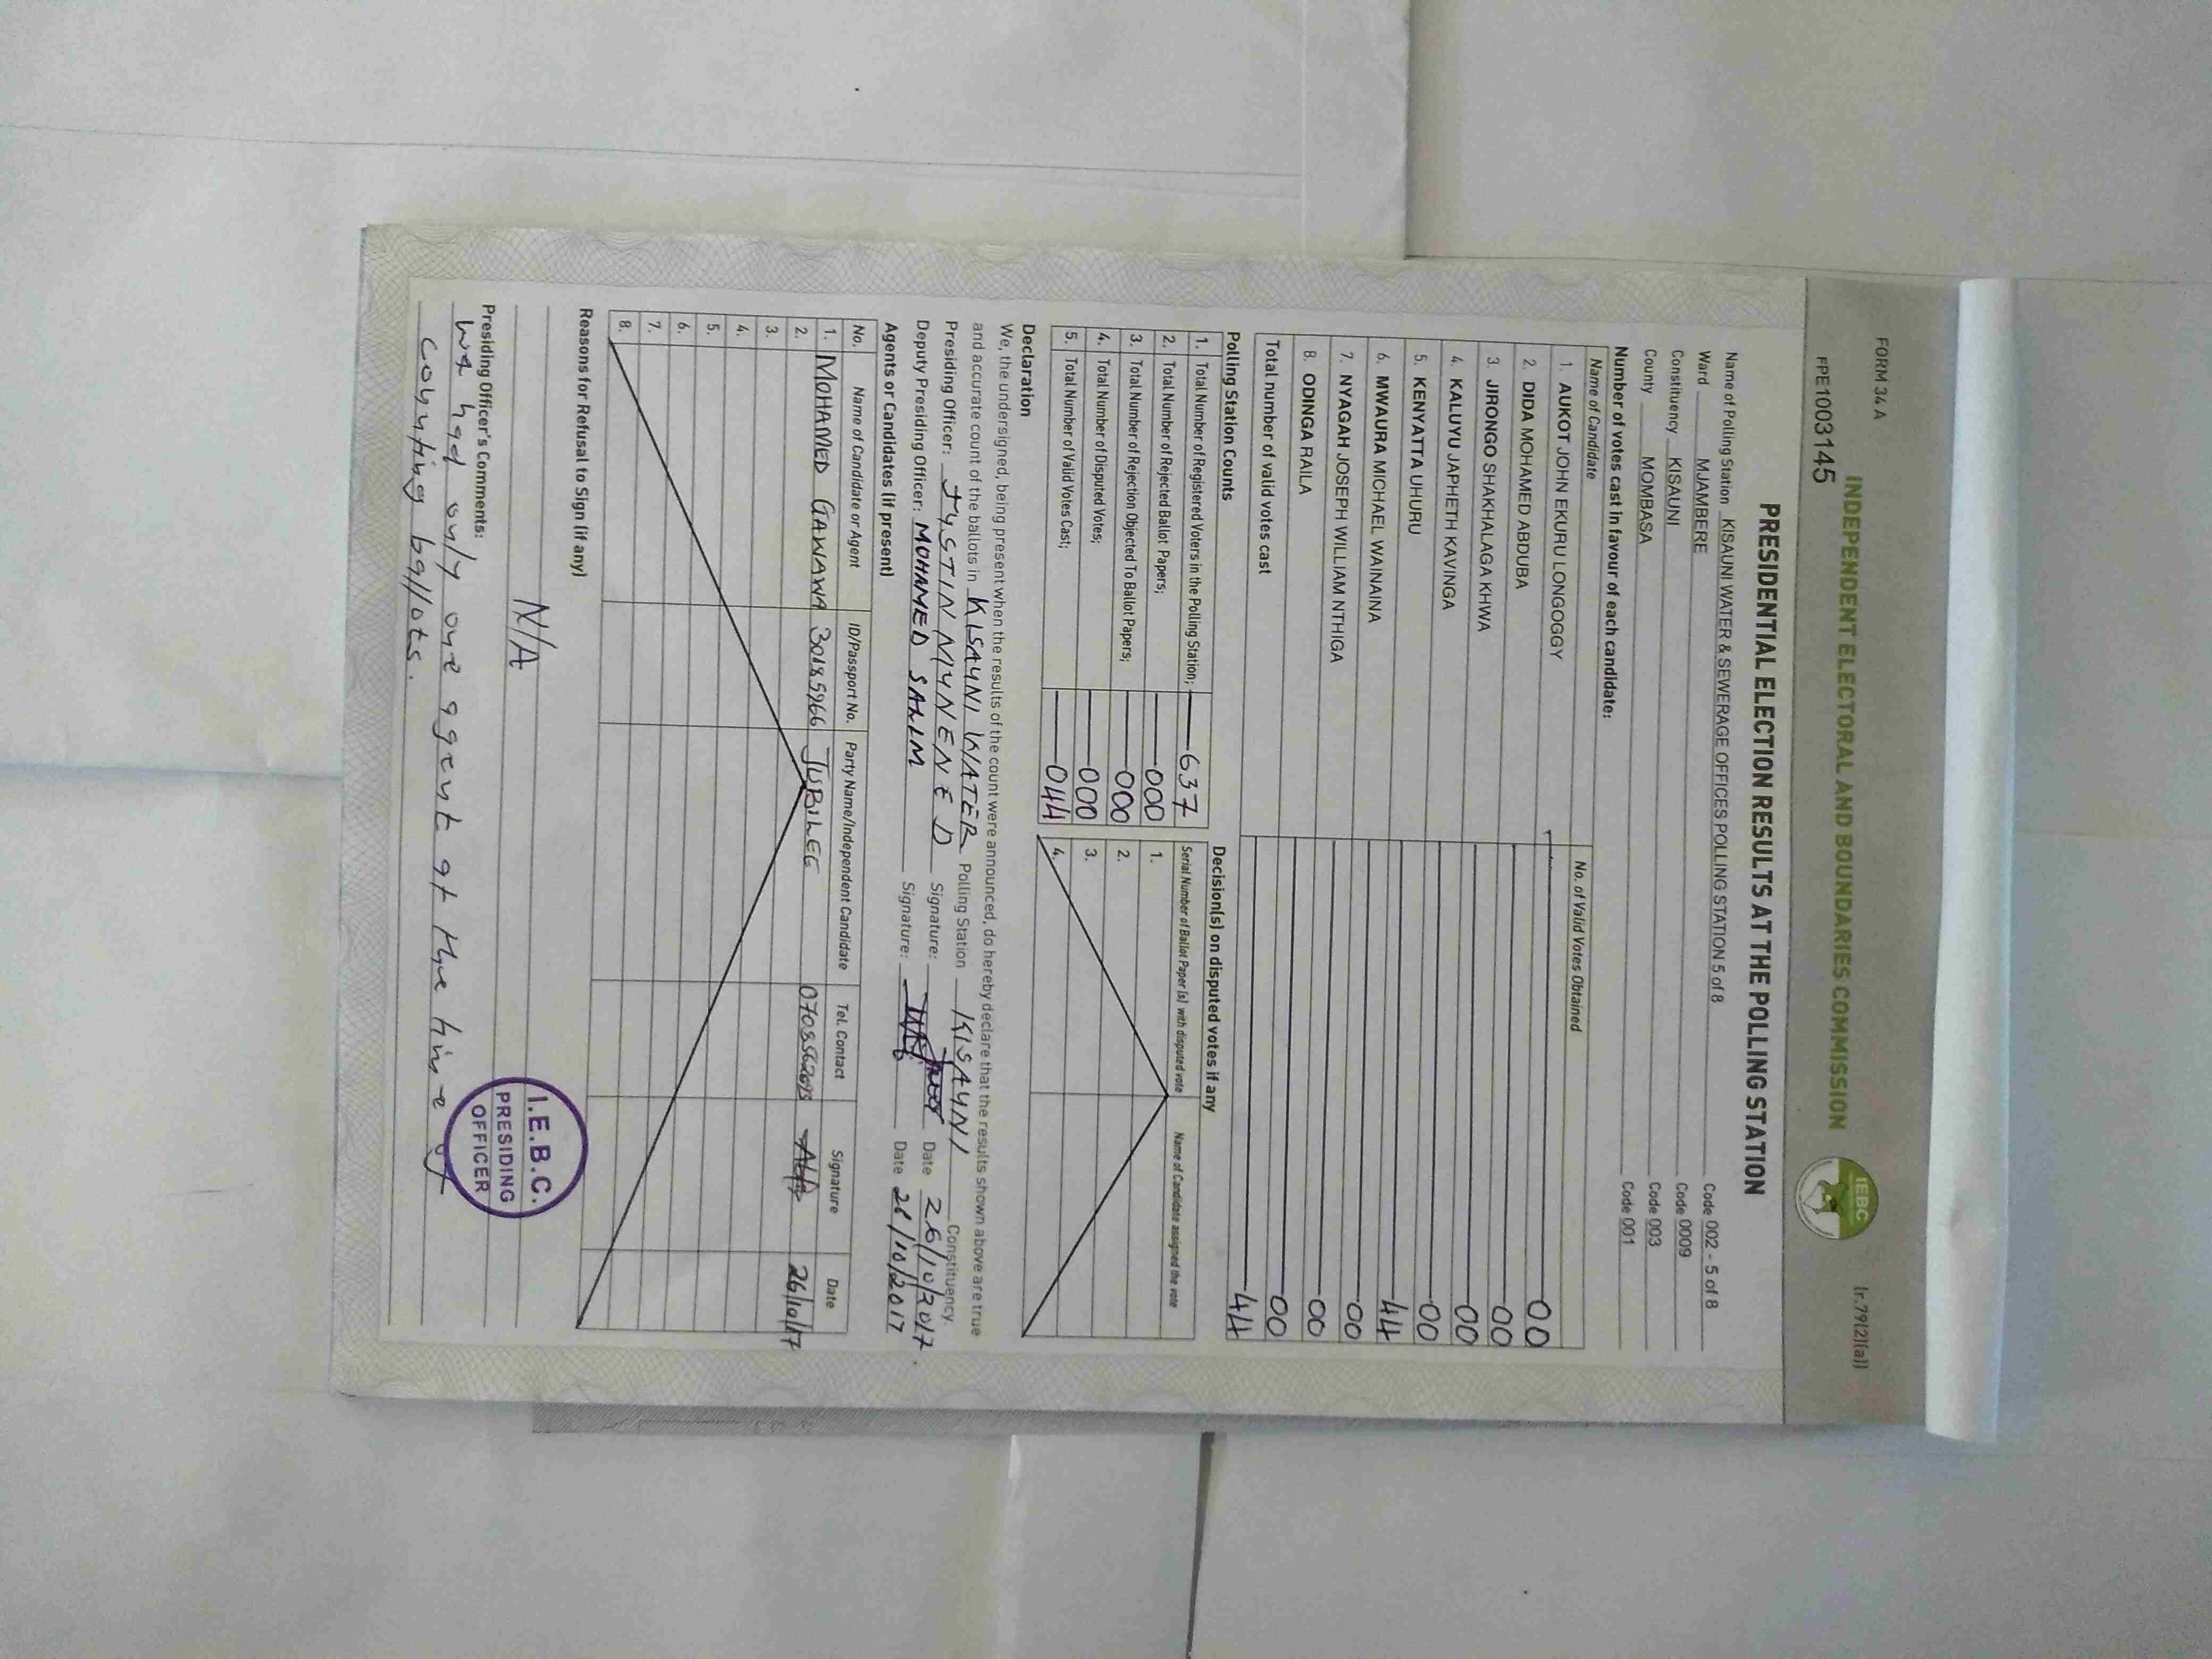 FORM 34 A
(r.79(2)(a))
INDEPENDENT ELECTORAL AND BOUNDARIES COMMISSION
IEBC
FPE1003145
PRESIDENTIAL ELECTION RESULTS AT THE POLLING STATION
Name of Polling Station KISAUNI WATER & SEWERAGE OFFICES POLLING STATION 5 of 8 Code 002 - 5 of 8
Ward MJAMBERE Code 0009
Constituency KISAUNI Code 003
County MOMBASA Code 001
Number of votes cast in favour of each candidate:
Name of Candidate No. of Valid Votes Obtained
1. AUKOT JOHN EKURU LONGOGGY 00
2. DIDA MOHAMED ABDUBA 00
3. JIRONGO SHAKHALAGA KHWA 00
4. KALUYU JAPHETH KAVINGA 00
5. KENYATTA UHURU 44
6. MWAURA MICHAEL WAINAINA 00
7. NYAGAH JOSEPH WILLIAM NTHIGA 00
8. ODINGA RAILA 00
Total number of valid votes cast 44
Polling Station Counts
1. Total Number of Registered Voters in the Polling Station; 637
2. Total Number of Rejected Ballot Papers; 000
3. Total Number of Rejection Objected To Ballot Papers; 000
4. Total Number of Disputed Votes; 000
5. Total Number of Valid Votes Cast; 044
Decision(s) on disputed votes if any
Serial Number of Ballot Paper (s) with disputed vote Name of Candidate assigned the vote
1.
2.
3.
4.
Declaration
We, the undersigned, being present when the results of the count were announced, do hereby declare that the results shown above are true
and accurate count of the ballots in KISAUNI WATER Polling Station KISAUNI Constituency.
Presiding Officer: JUSTIN MUNENE D Signature: Date 26/10/2017
Deputy Presiding Officer: MOHAMED SALIM Signature: Date 26/10/2017
Agents or Candidates (if present)
No. Name of Candidate or Agent ID/Passport No. Party Name/Independent Candidate Tel. Contact Signature Date
1. MOHAMED 30185966 JUBILEE 26/10/17
2.
3.
4.
5.
6.
7.
8.
Reasons for Refusal to Sign (if any)
N/A
Presiding Officer's Comments:
We had only one agent at the time of
counting ballots.
I.E.B.C.
PRESIDING
OFFICER